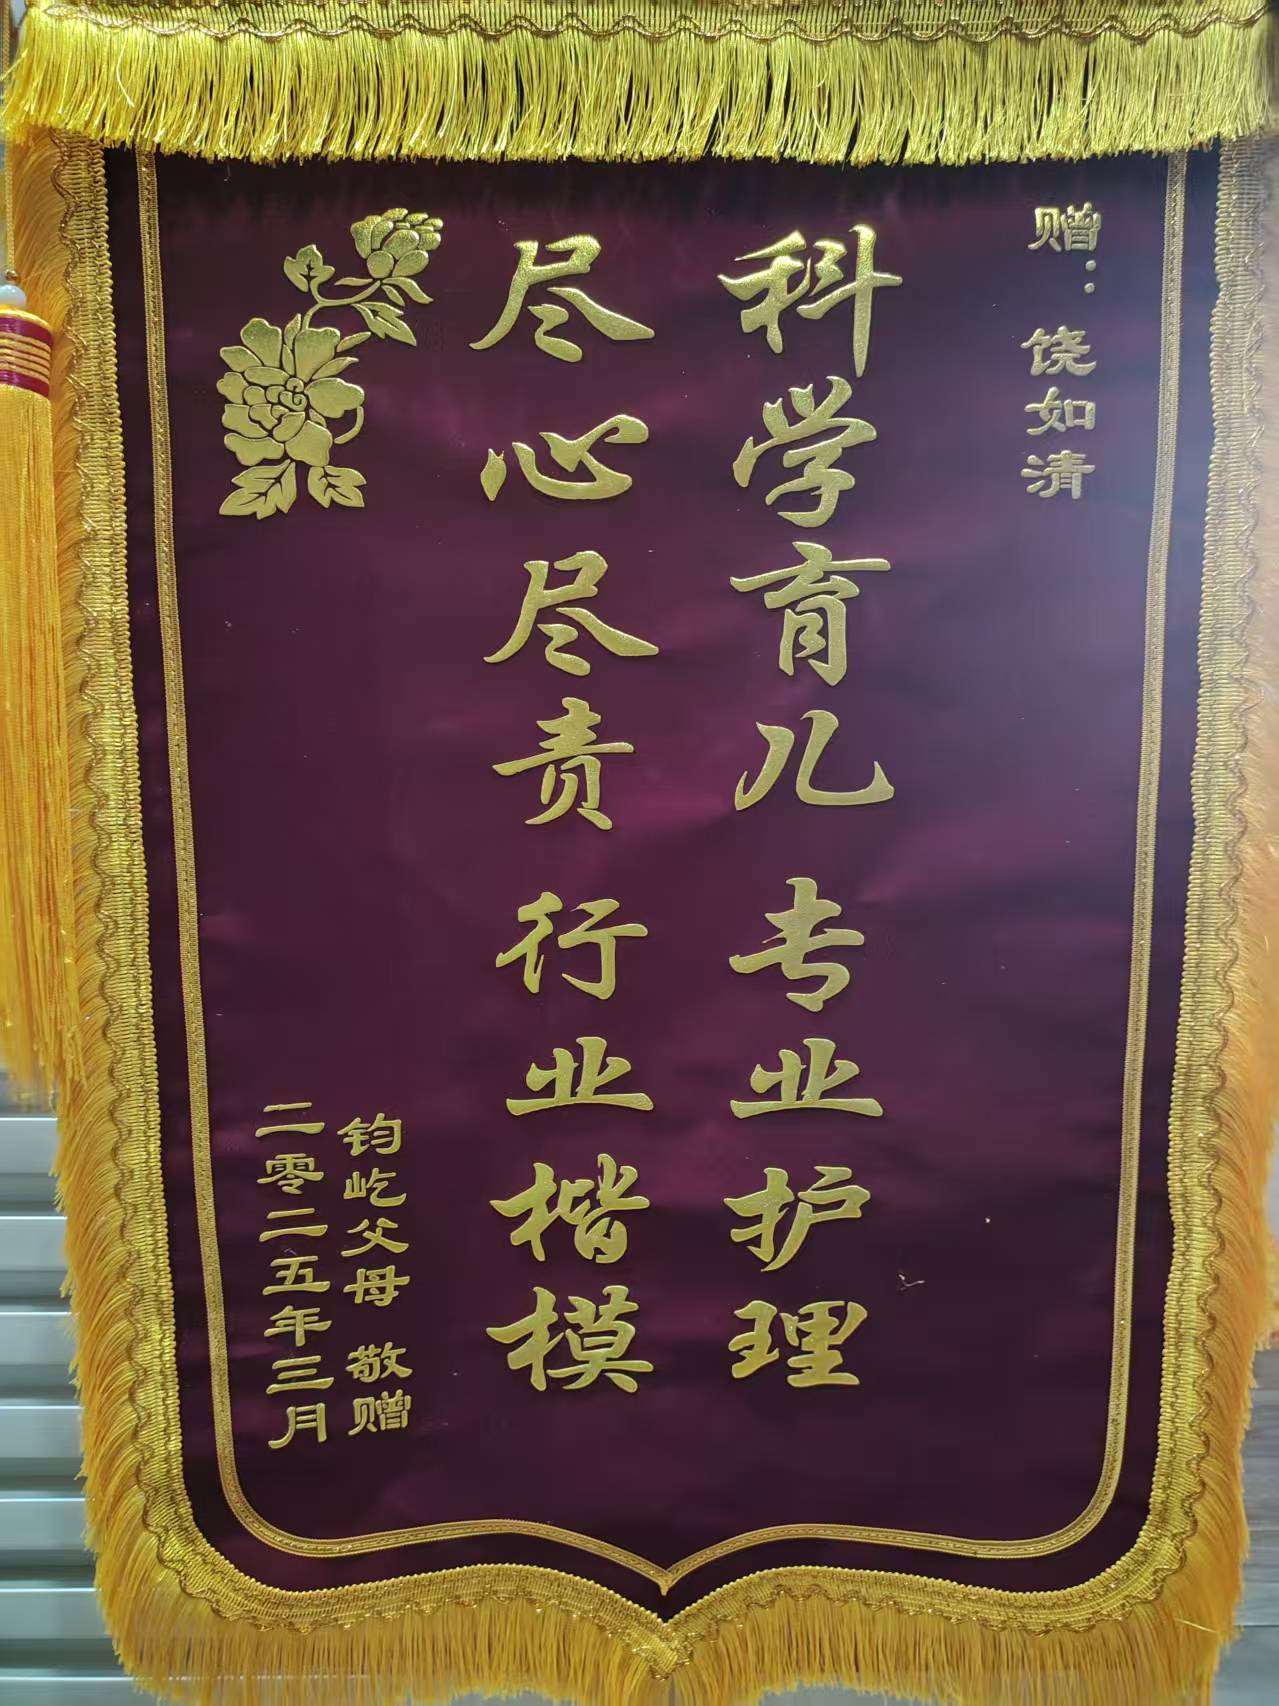 赠：饶如清
科学育儿 专业护理
尽心尽责 行业楷模
钧屹父母 敬赠
二零二五年三月